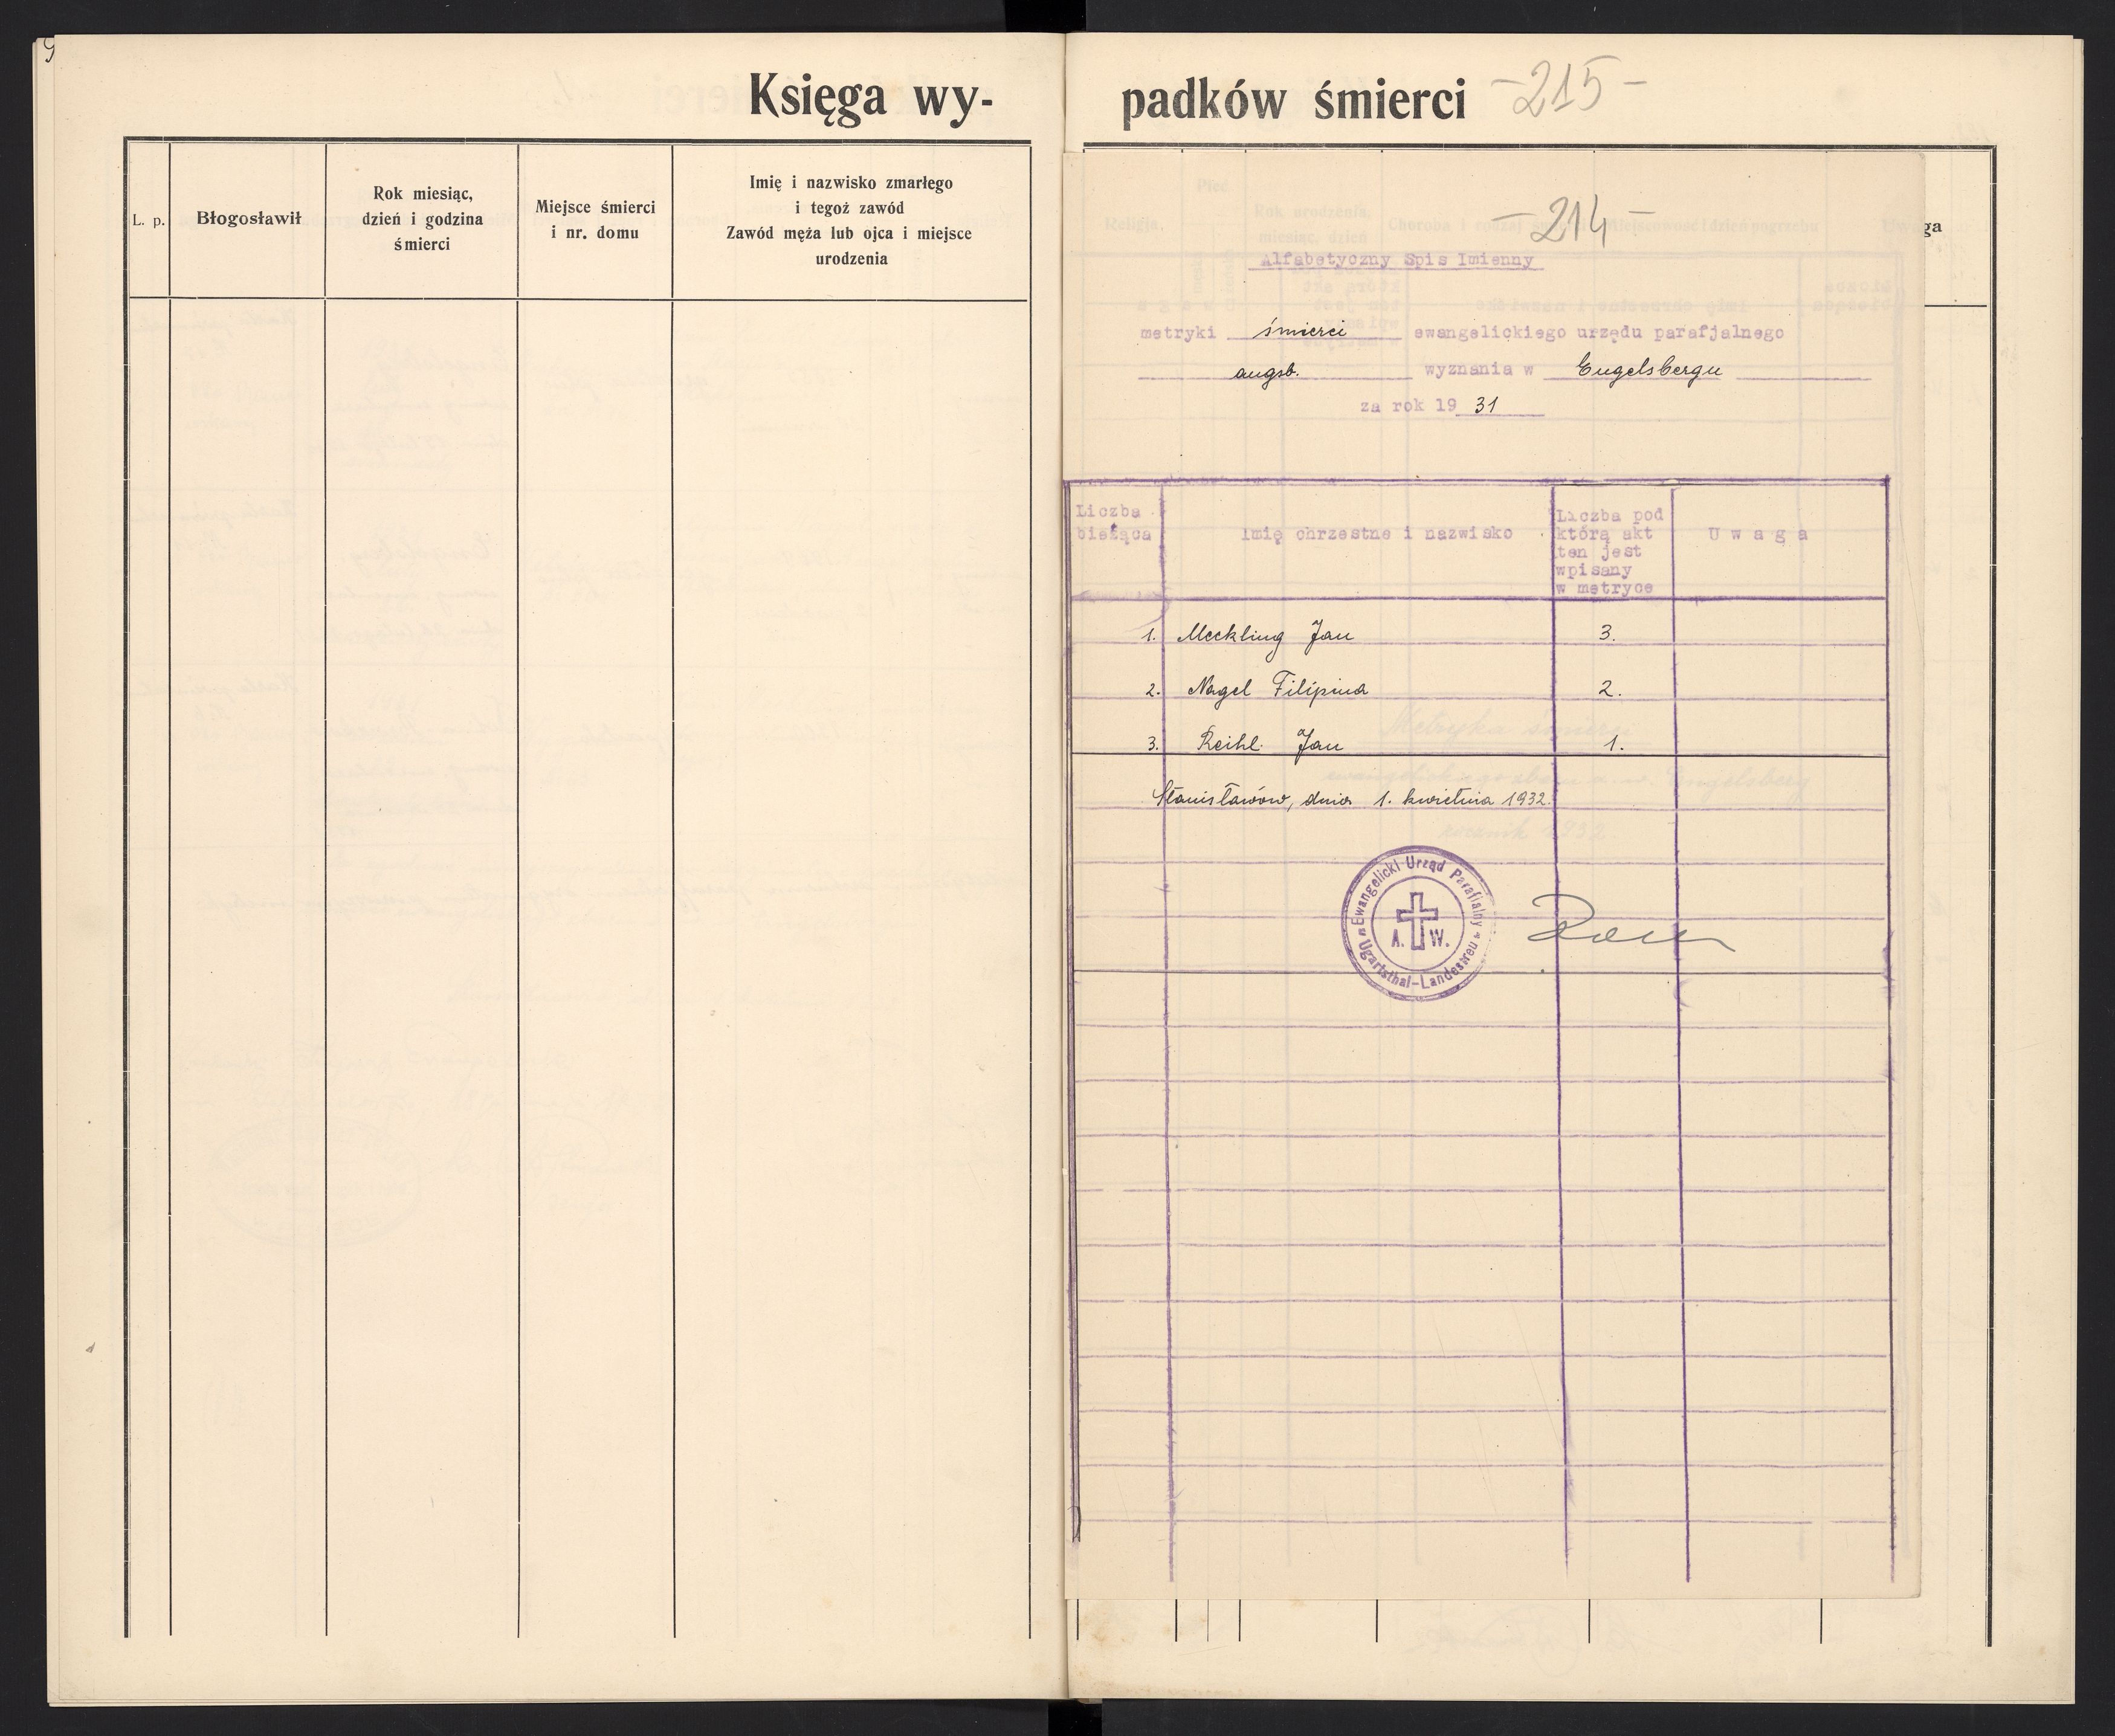 Księga wy-
L. p.
Błogosławił
Rok miesiąc,
dzień i godzina
śmierci
Miejsce śmierci
i nr. domu
Imię i nazwisko zmarłego
i tegoż zawód
Zawód męża lub ojca i miejsce
urodzenia
padków śmierci -215-
-214-
Alfabetyczny Spis Imienny
metryki śmierci ewangelickiego urzędu parafjalnego
augsb. wyznania w Engelsbergu
za rok 19 31
Liczba
bieżąca
Imię chrzestne i nazwisko
Liczba pod
którą akt
ten jest
wpisany
w metryce
Uwaga
1. Meckling Jan 3.
2. Nagel Filipina 2.
3. Reihl Jan 1.
Stanisławów, dnia 1. kwietnia 1932.
Ewangelicki Urząd Parafialny
A. W.
Ugartsthal-Landestreu
ga